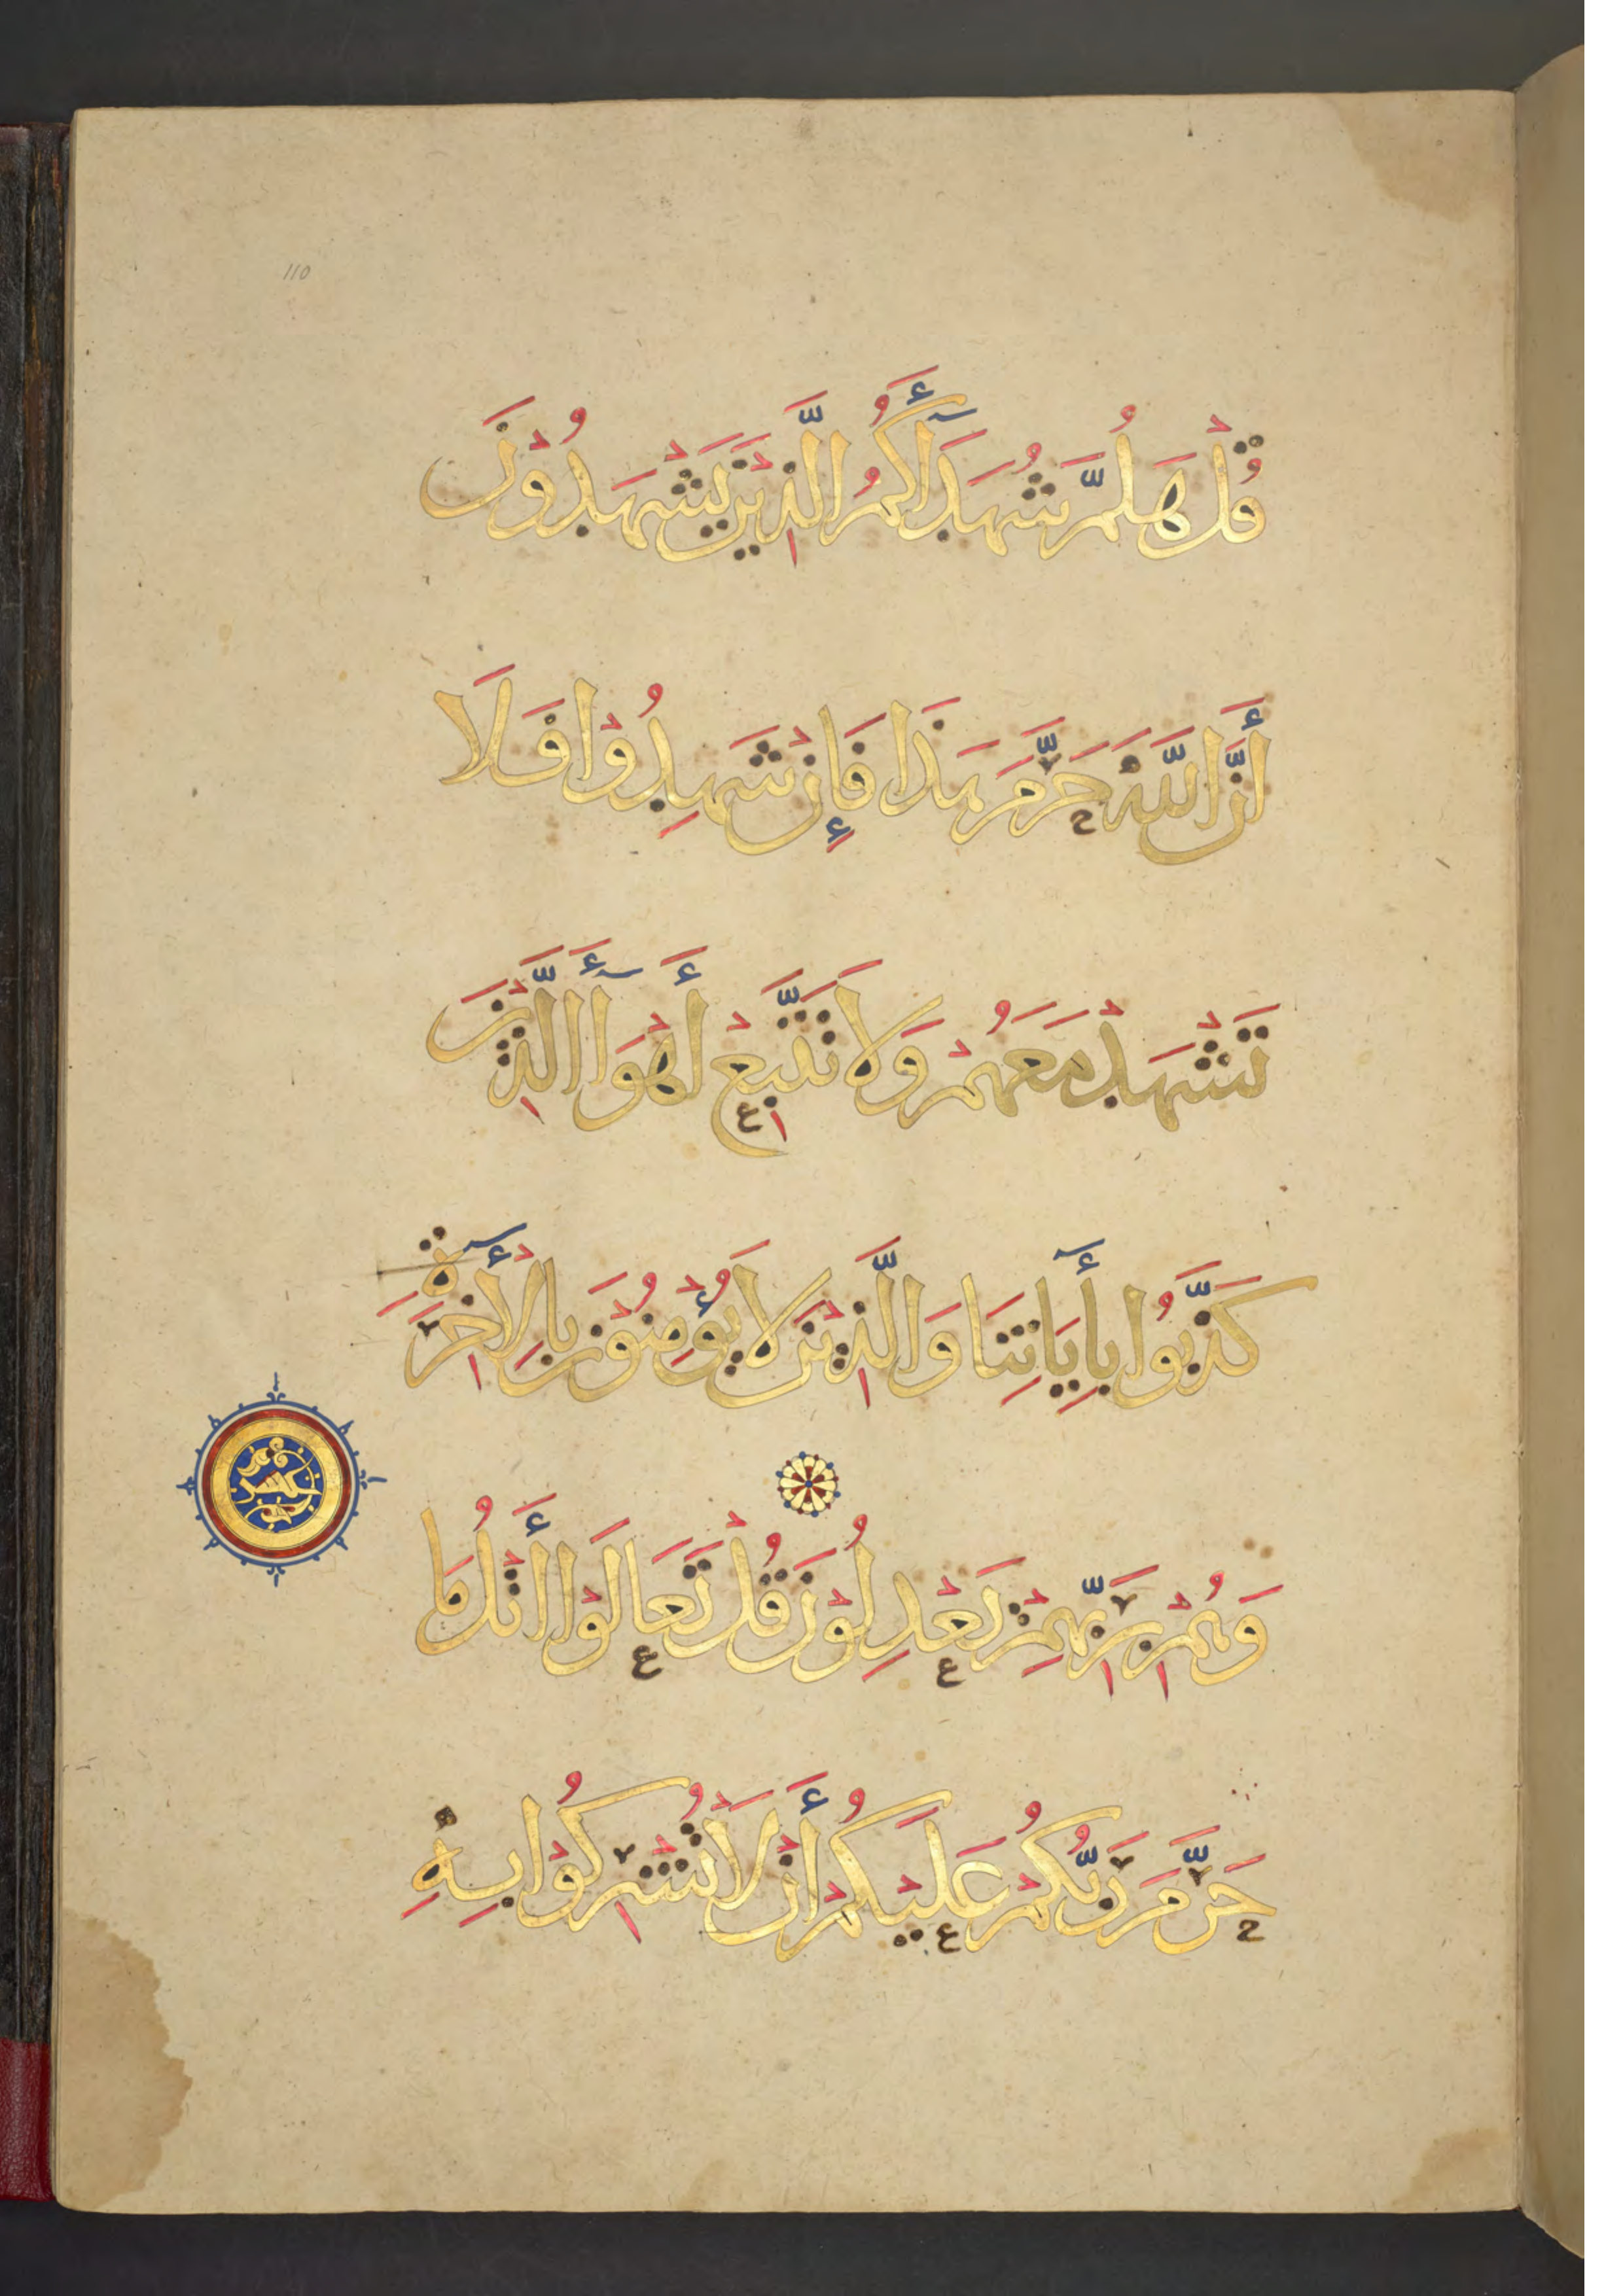 110
قُلْ هَلُمَّ شُهَدَآءَكُمُ الَّذِيْنَ يَشْهَدُوْنَ
أَنَّ اللَّهَ حَرَّمَ هَذَا فَإِنْ شَهِدُوْا فَلَا
تَشْهَدْ مَعَهُمْ وَلَا تَتَّبِعْ أَهْوَآءَ الَّذِيْنَ
كَذَّبُوا بِأَيَاتِنَا وَالَّذِيْنَ لَا يُؤْمِنُوْنَ بِالْأَخِرَةِ
وَهُمْ بِرَبِّهِمْ يَعْدِلُوْنَ قُلْ تَعَالَوْا أَتْلُ مَا
حَرَّمَ رَبُّكُمْ عَلَيْكُمْ أَنْ لَا تُشْرِكُوْا بِهِ